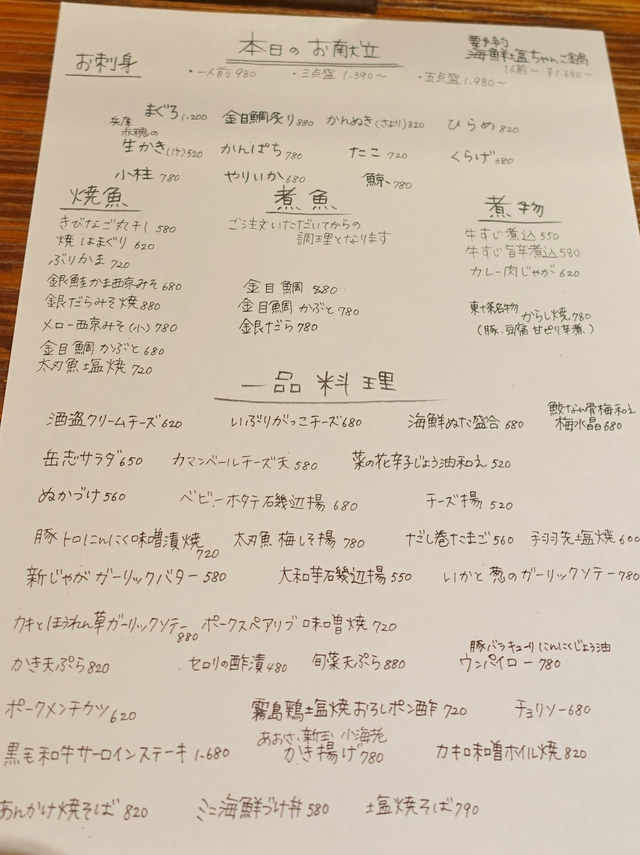 本日のお献立
お刺身
・一人前980 ・三点盛1,390〜 ・五点盛1,980〜
要予約
海鮮塩ちゃんこ鍋
1人前〜 ¥1,680〜
まぐろ1,200 金目鯛炙り880 かんぬき(さより)820 ひらめ820
兵庫
赤穂の
生かき(1ヶ)520 かんぱち780 たこ720 くらげ680
小柱780 やりいか680 鯨780
焼魚
きびなご丸干し580
焼はまぐり620
ぶりかま720
銀鮭かま西京みそ680
銀だらみそ焼880
メロー西京みそ(小)780
金目鯛かぶと680
太刀魚塩焼720
煮魚
ご注文いただいてからの
調理となります
金目鯛880
金目鯛かぶと780
銀だら780
煮物
牛すじ煮込550
牛すじ旨辛煮込580
カレー肉じゃが620
東十条名物
からし焼780
(豚、豆腐 甘ピリ辛煮。)
一品料理
酒盗クリームチーズ620 いぶりがっこチーズ680 海鮮ぬた盛合680
鮫なん骨梅和え
梅水晶680
岳志サラダ650 カマンベールチーズ天580 菜の花辛子じょう油和え520
ぬかづけ560 ベビーホタテ石磯辺揚680 チーズ揚520
豚トロにんにく味噌漬焼720 太刀魚梅しそ揚780 だし巻たまご560 手羽先塩焼600
新じゃがガーリックバター580 大和芋石磯辺揚550 いかと葱のガーリックソテー780
カキとほうれん草ガーリックソテー880 ポークスペアリブ味噌焼720
豚バラキューリにんにくじょう油
かき天ぷら820 セロリの酢漬480 旬菜天ぷら880 ウンパイロー780
ポークメンチカツ620 霧島鶏塩焼おろしポン酢720 チョリソー680
あおさ、新玉、小海老
黒毛和牛サーロインステーキ1,680 かき揚げ780 カキ味噌ホイル焼820
あんかけ焼そば820 ミニ海鮮づけ丼580 塩焼そば790